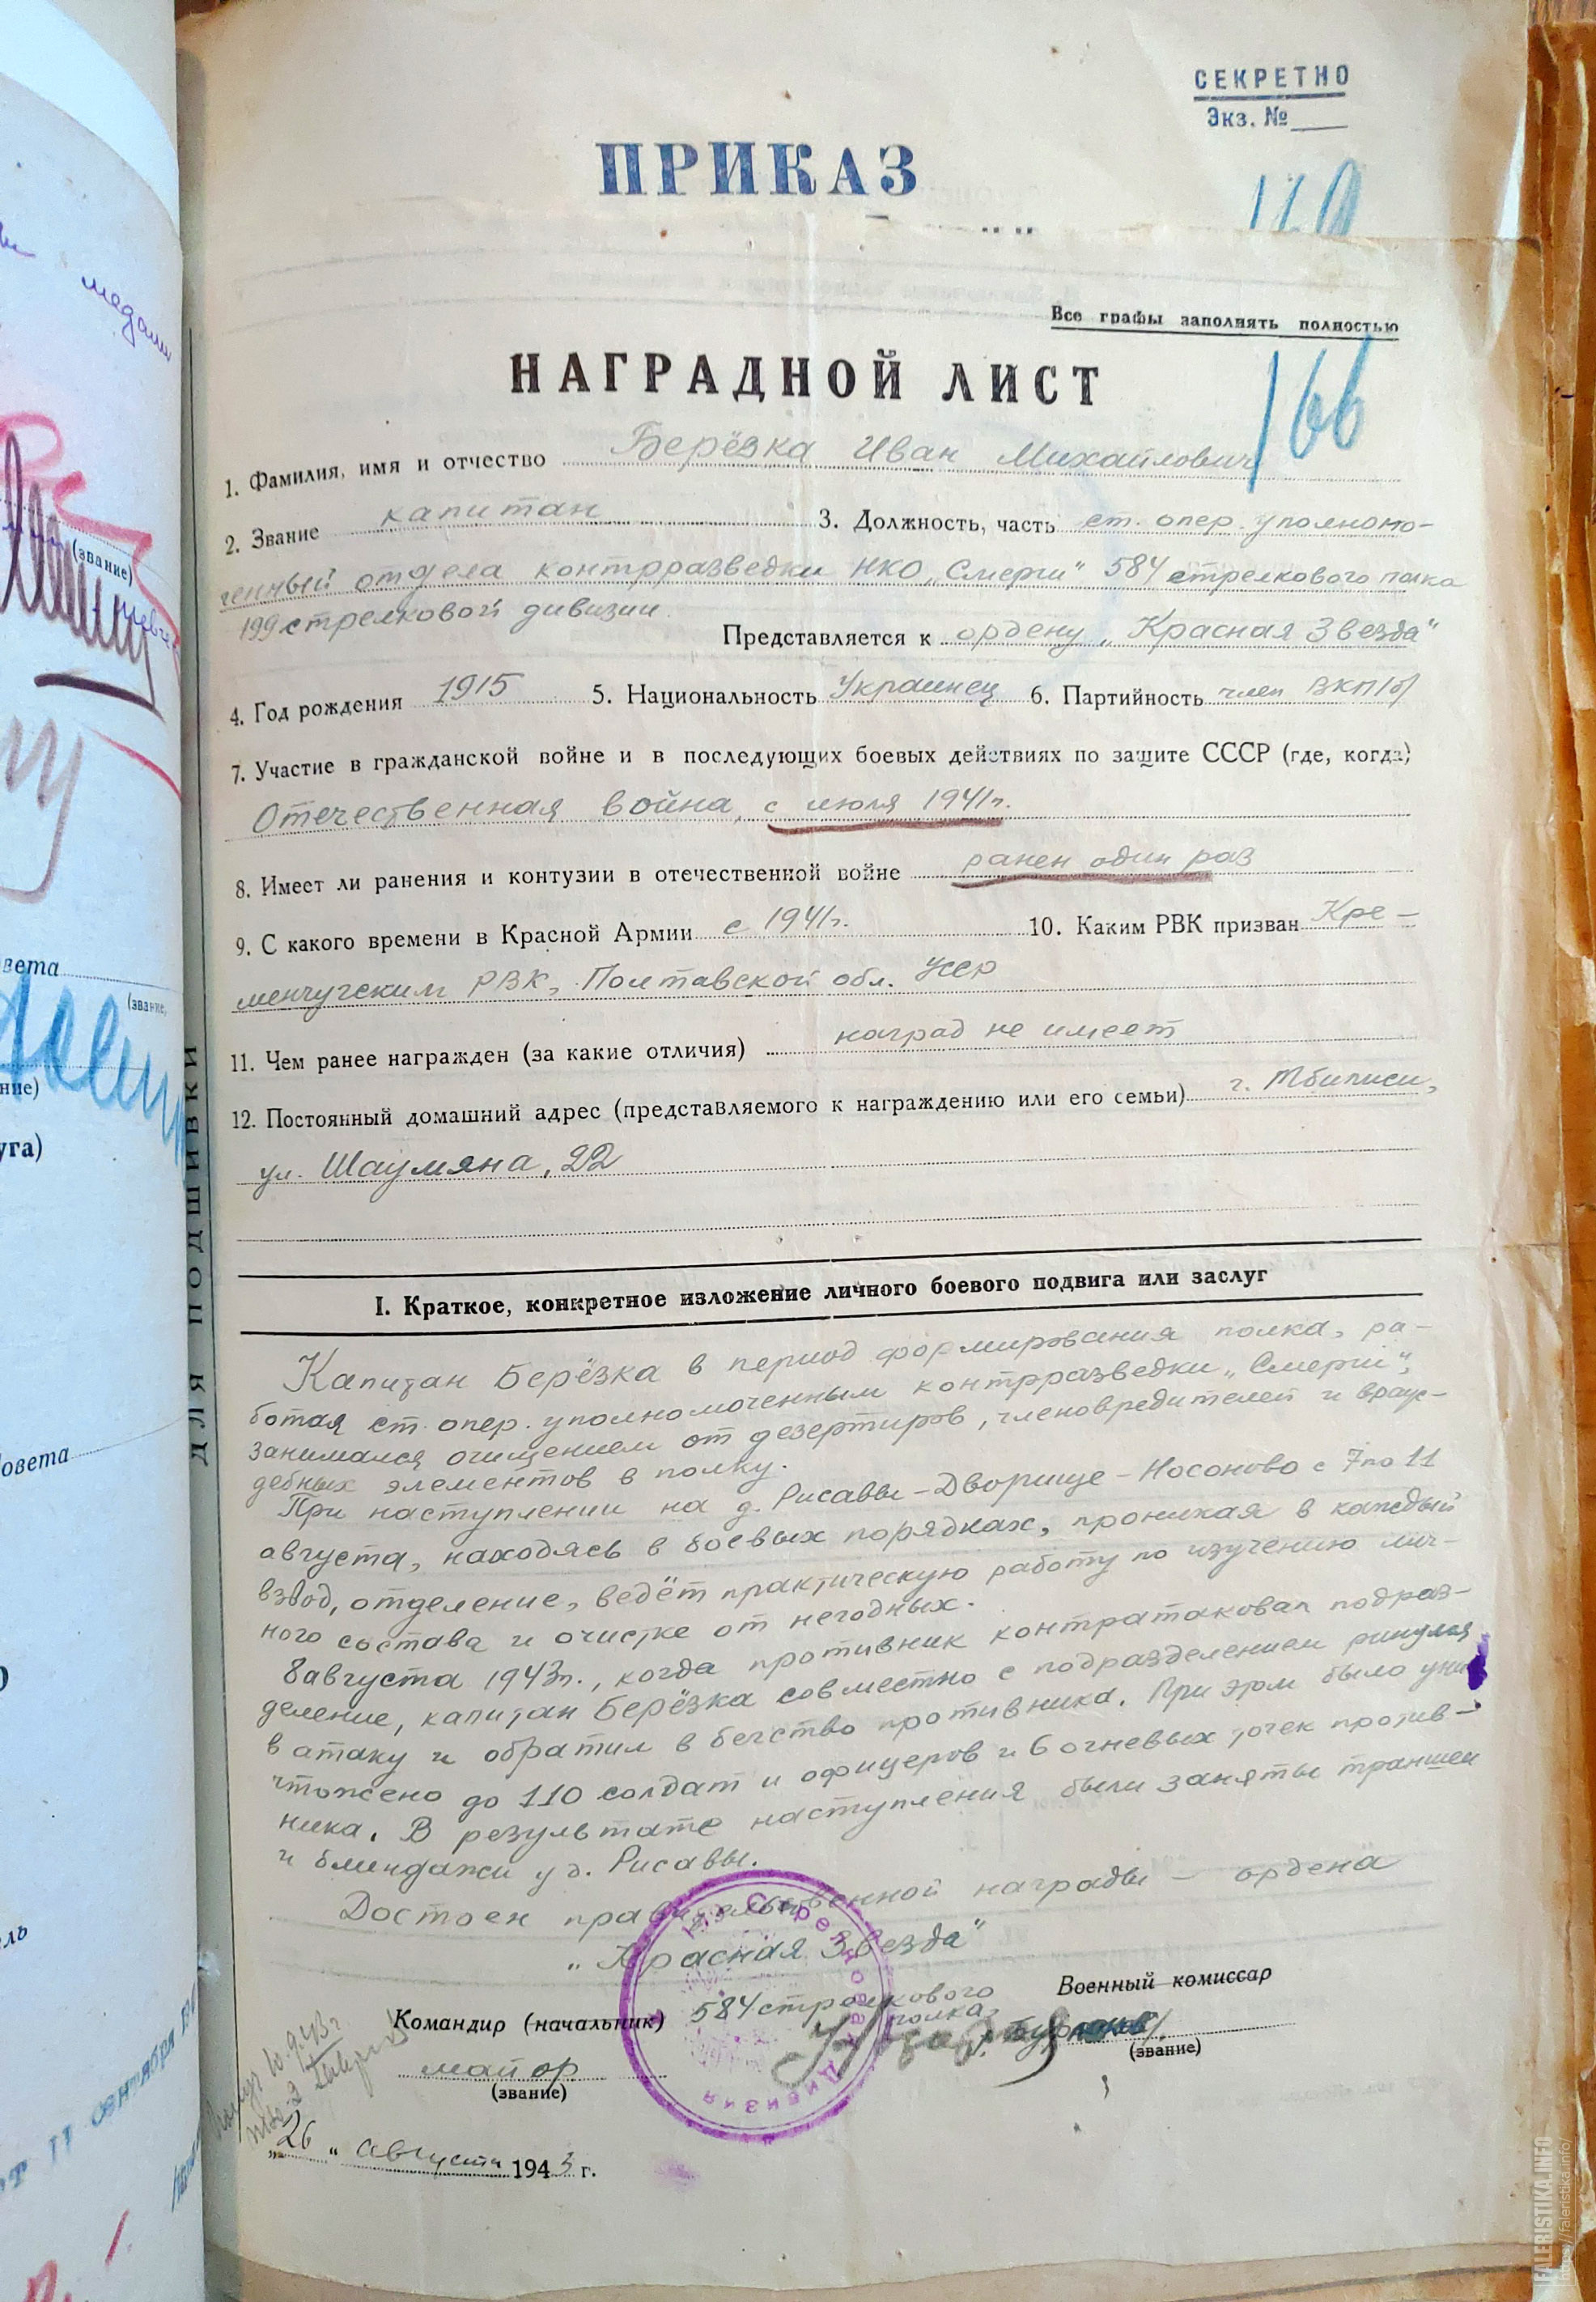 СЕКРЕТНО
Экз. №
ПРИКАЗ
Все графы заполнять полностью
166
НАГРАДНОЙ ЛИСТ
1. Фамилия, имя и отчество Берёзка Иван Михайлович
2. Звание капитан 3. Должность, часть ст. опер. уполномо-
ченный отдела контрразведки НКО „Смерш" 584 стрелкового полка
199 стрелковой дивизии.
Представляется к ордену „Красная Звезда"
4. Год рождения 1915 5. Национальность Украинец 6. Партийность член ВКП/б/
7. Участие в гражданской войне и в последующих боевых действиях по защите СССР (где, когда)
Отечественная война, с июля 1941г.
8. Имеет ли ранения и контузии в отечественной войне ранен один раз
9. С какого времени в Красной Армии с 1941г. 10. Каким РВК призван Кре-
менчугским РВК, Полтавской обл. УССР
11. Чем ранее награжден (за какие отличия) наград не имеет
12. Постоянный домашний адрес (представляемого к награждению или его семьи) г. Тбилиси,
ул. Шаумяна, 22
I. Краткое, конкретное изложение личного боевого подвига или заслуг
Капитан Берёзка в период формирования полка, ра-
ботая ст. опер. уполномоченным контрразведки „Смерш",
занимался очищением от дезертиров, членовредителей и враж-
дебных элементов в полку.
При наступлении на д. Рисавы-Дворище-Носоново с 7 по 11
августа, находясь в боевых порядках, проникая в каждый
взвод, отделение, ведёт практическую работу по изучению лич-
ного состава и очистке от негодных.
8 августа 1943г., когда противник контратаковал подраз-
деление, капитан Берёзка совместно с подразделением ринулся
в атаку и обратил в бегство противника. При этом было уни-
чтожено до 110 солдат и офицеров и 6 огневых точек против-
ника. В результате наступления были заняты траншеи
и блиндажи у д. Рисавы.
Достоен правительственной награды - ордена
„Красная Звезда"
Командир (начальник) 584 стрелкового
полка
Военный комиссар
майор
(звание)
(звание)
„26" августа 1943 г.
ДЛЯ ПОДШИВКИ
медали
(звание)
FALERISTIKA.INFO
https://faleristika.info/